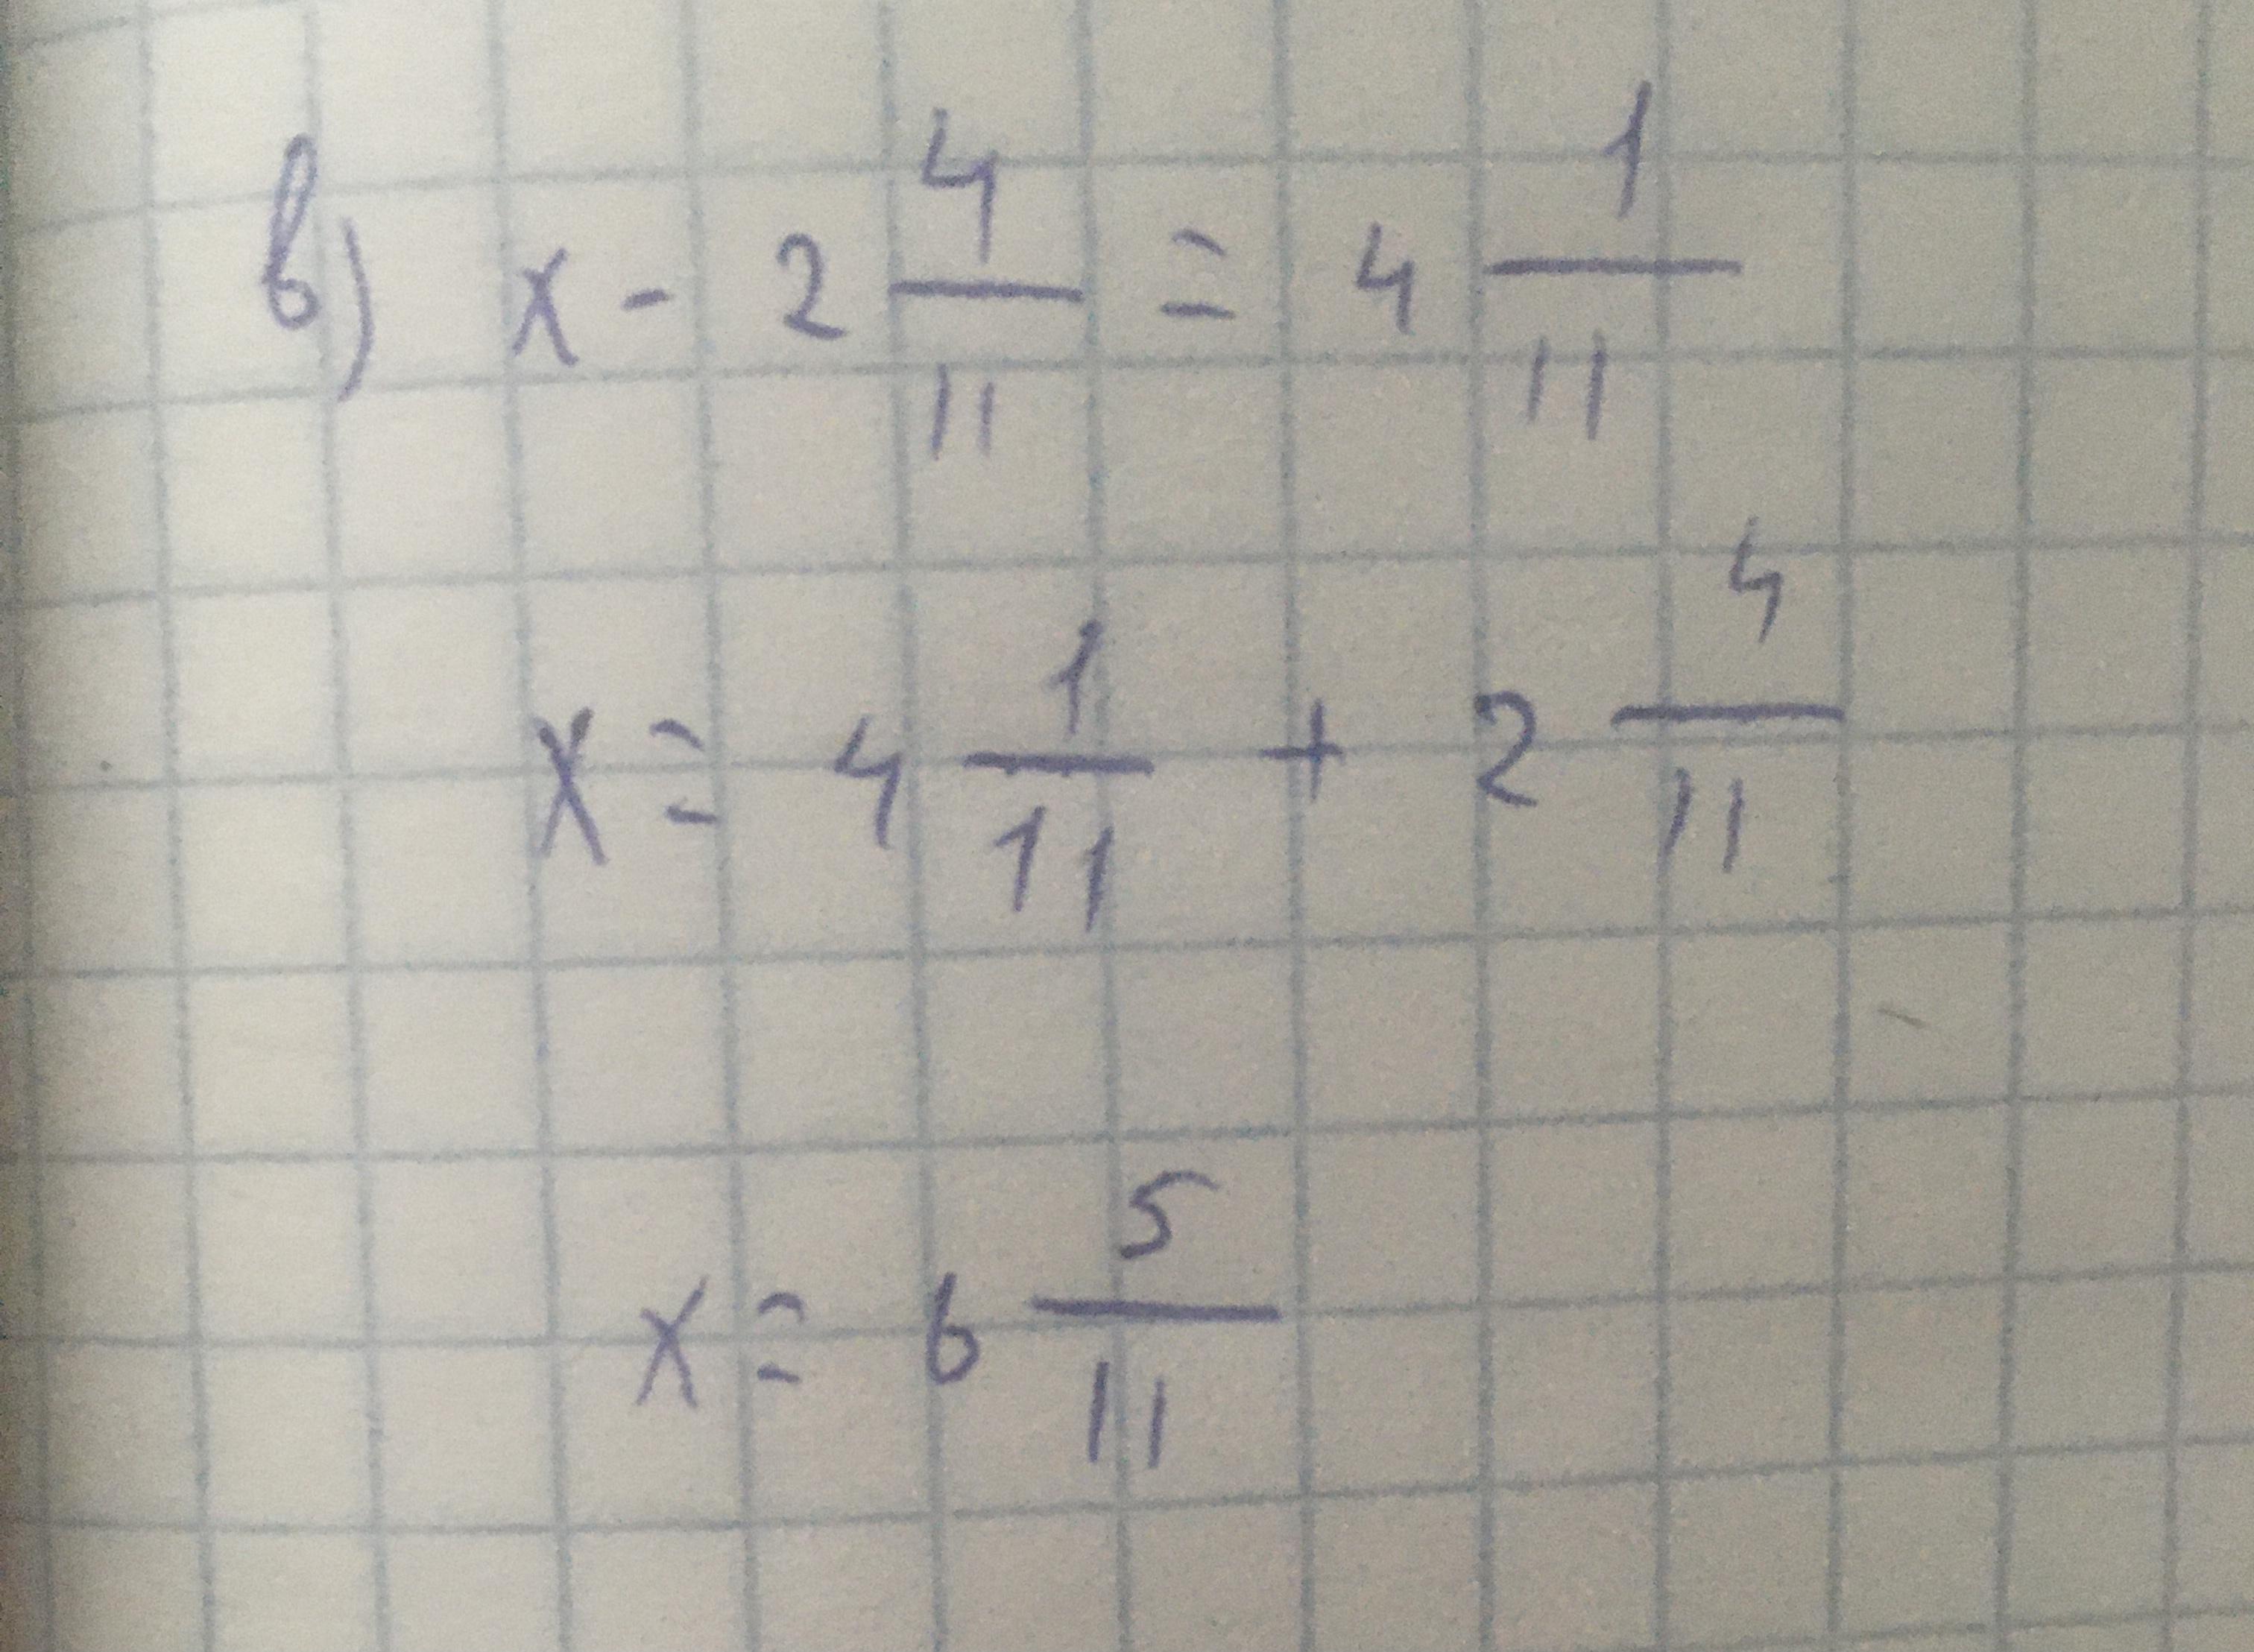 в) x - 2 4/11 = 4 1/11
x = 4 1/11 + 2 4/11
x = 6 5/11